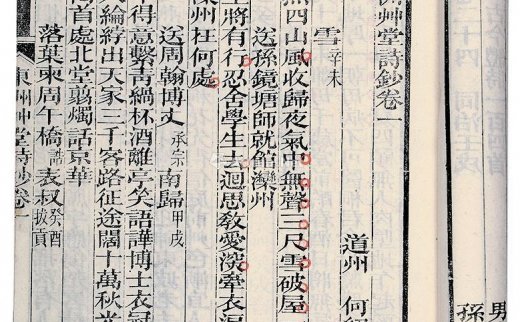 洲艸堂詩鈔卷一
道州 何
雪 辛未
無四山風收歸夜氣中無聲三尺雪破屋
送孫鏡塘師就館灤州
生將有行忍舍學生去迴思敎愛深牽衣
灤州在何處
送周翰博丈 承宗 南歸 甲戌
得意繫靑緺杯酒離亭笑語譁博士衣冠
綸綍出天家三千客路征途闊十萬秋光
首處北堂翦燭話京華
落葉柬周午橋 誥 表叔 癸酉拔貢
東洲艸堂詩鈔 卷一
男
孫